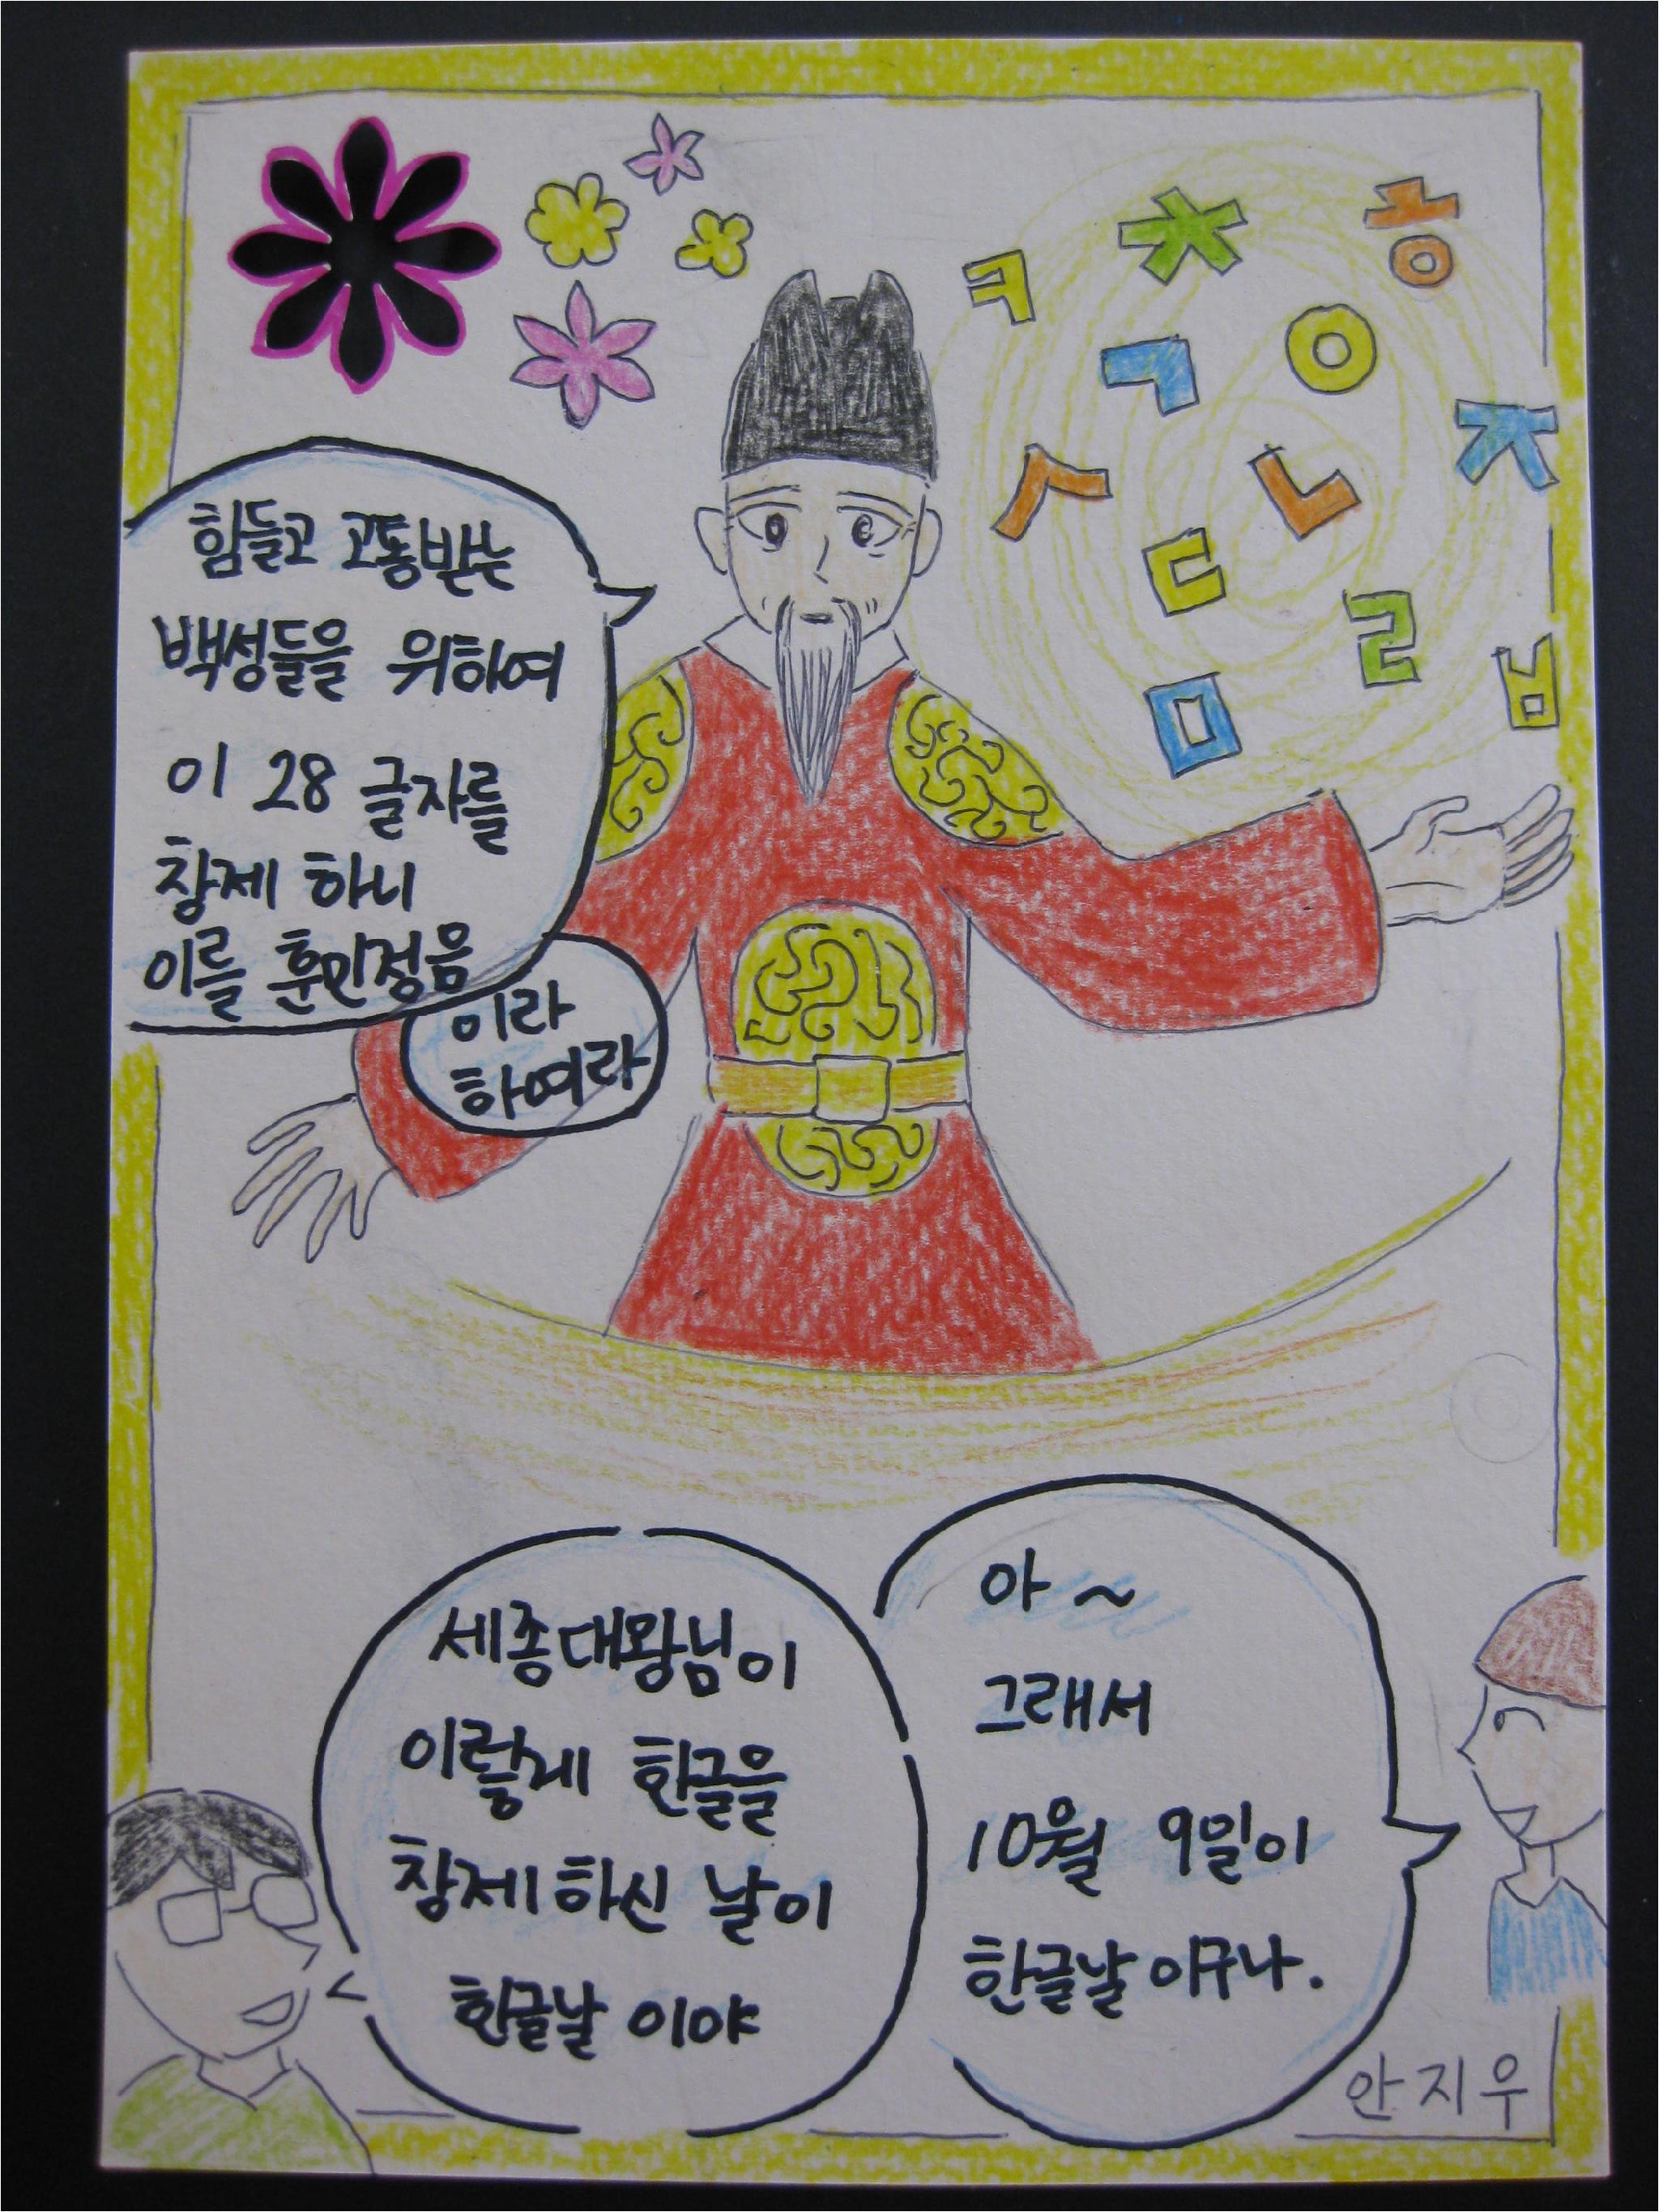 힘들고 고통받는
백성들을 위하여
이 28 글자를
창제 하니
이를 훈민정음
이라
하여라
ㅋ ㅊ ㅎ
ㄱ ㅇ
ㅅ ㄴ ㅈ
ㄷ ㄹ
ㅁ ㅂ
세종대왕님이
이렇게 한글을
창제 하신 날이
한글날 이야
아~
그래서
10월 9일이
한글날 이구나.
안지우